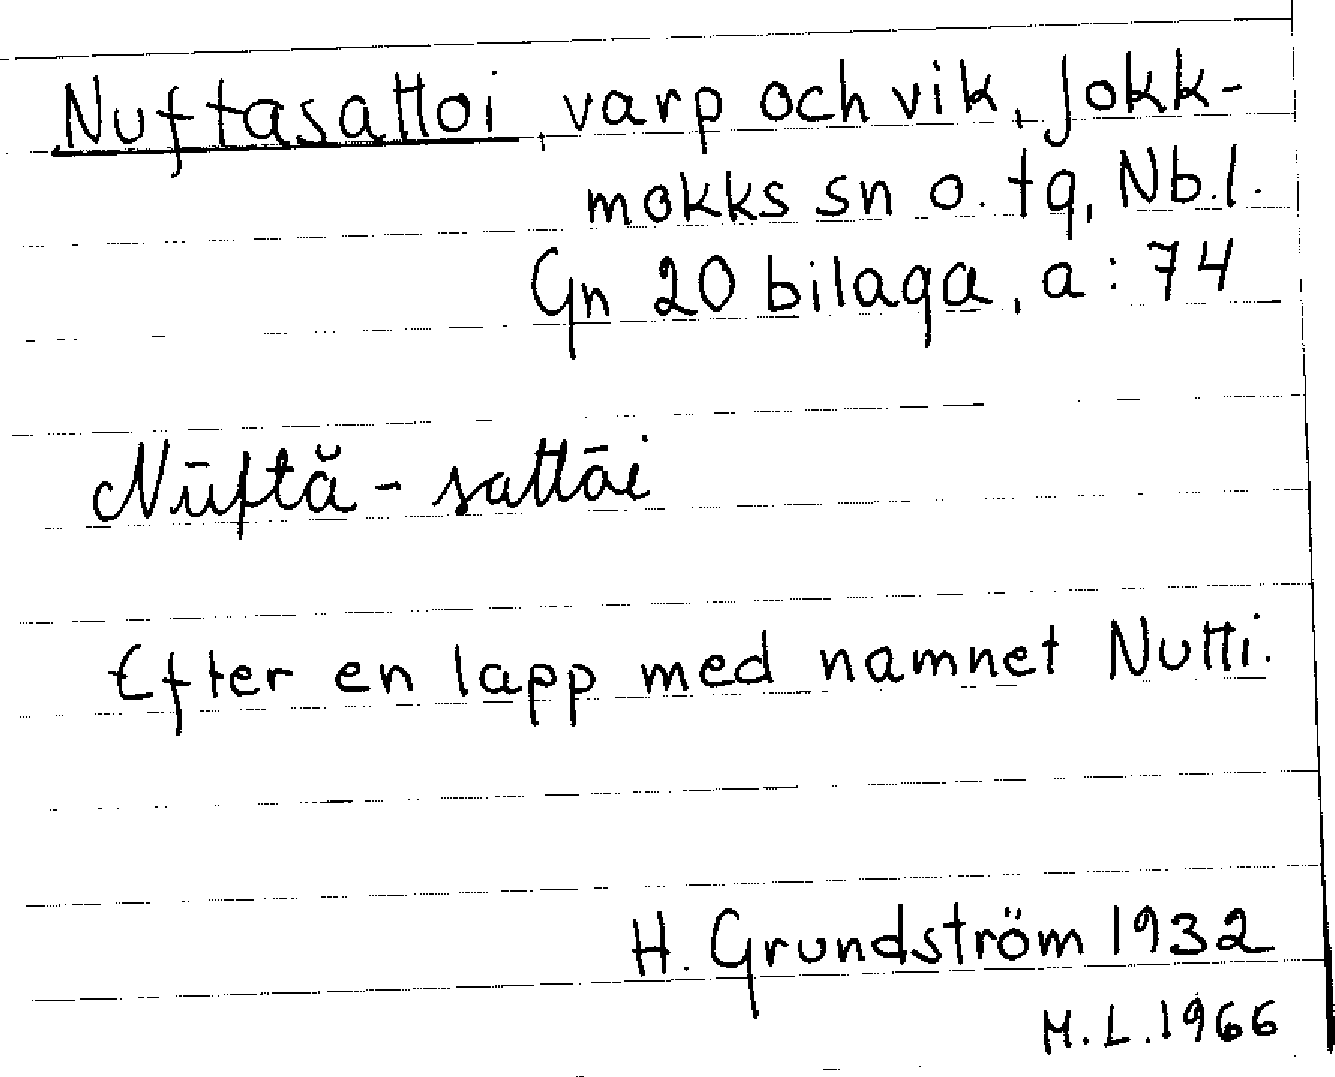 Nuftasattoi, varp och vik, Jokk-
mokks sn o. tg, Nb.l.
Gn 20 bilaga, a: 74
Nūftă - sattāi
Efter en lapp med namnet Nutti.
H. Grundström 1932
M.L.1966